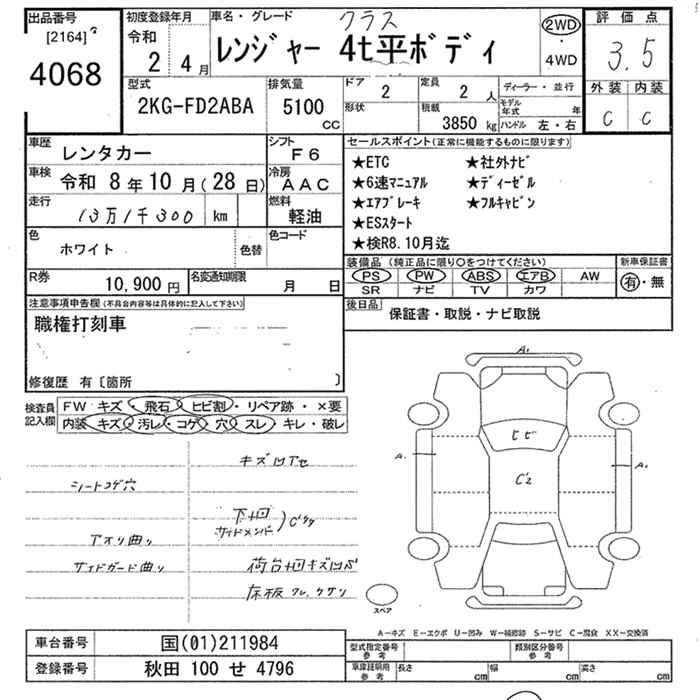 出品番号
[2164]
4068
初度登録年月
令和
2 4月
車名・グレード
クラス
レンジャー 4t平ボディ
2WD
・
4WD
評価点
3.5
外装 内装
C C
型式
2KG-FD2ABA
排気量
5100
cc
ドア
2
形状
定員
2人
積載
3850 kg
ディーラー・並行
モデル年式 年
ハンドル 左・右
車歴
レンタカー
シフト
F6
車検
令和 8年10月(28日)
冷房
AAC
走行
13万1千300 km
燃料
軽油
色
ホワイト
色替
色コード
R券
10,900円
名変通知期限
月 日
セールスポイント(正常に機能するものに限ります)
★ETC ★社外ナビ
★6速マニュアル ★ディーゼル
★エアブレーキ ★フルキャビン
★ESスタート
★検R8.10月迄
装備品(純正品に限り○をつけてください)
PS PW ABS エアB AW
SR ナビ TV カワ
新車保証書
有・無
後日品
保証書・取説・ナビ取説
注意事項申告欄(不具合内容等は具体的に記入して下さい)
職権打刻車
修復歴 有〔箇所 〕
検査員記入欄
FW キズ・飛石・ヒビ割・リペア跡・×要
内装 キズ・汚レ・コゲ・穴・スレ・キレ・破レ
キズ凹アセ
シートコゲ穴
下廻
サイドメンバー
アオリ曲り
サイドガード曲り
荷台廻キズ凹
床板
A.
ヒビ
A.
C2
A.
スペア
A－キズ E－エクボ U－凹み W－補修跡 S－サビ C－腐食 XX－交換済
車台番号
国(01)211984
登録番号
秋田 100 せ 4796
型式指定番号
参考
類別区分番号
参考
車庫証明用
参考
長さ cm
幅 cm
高さ cm